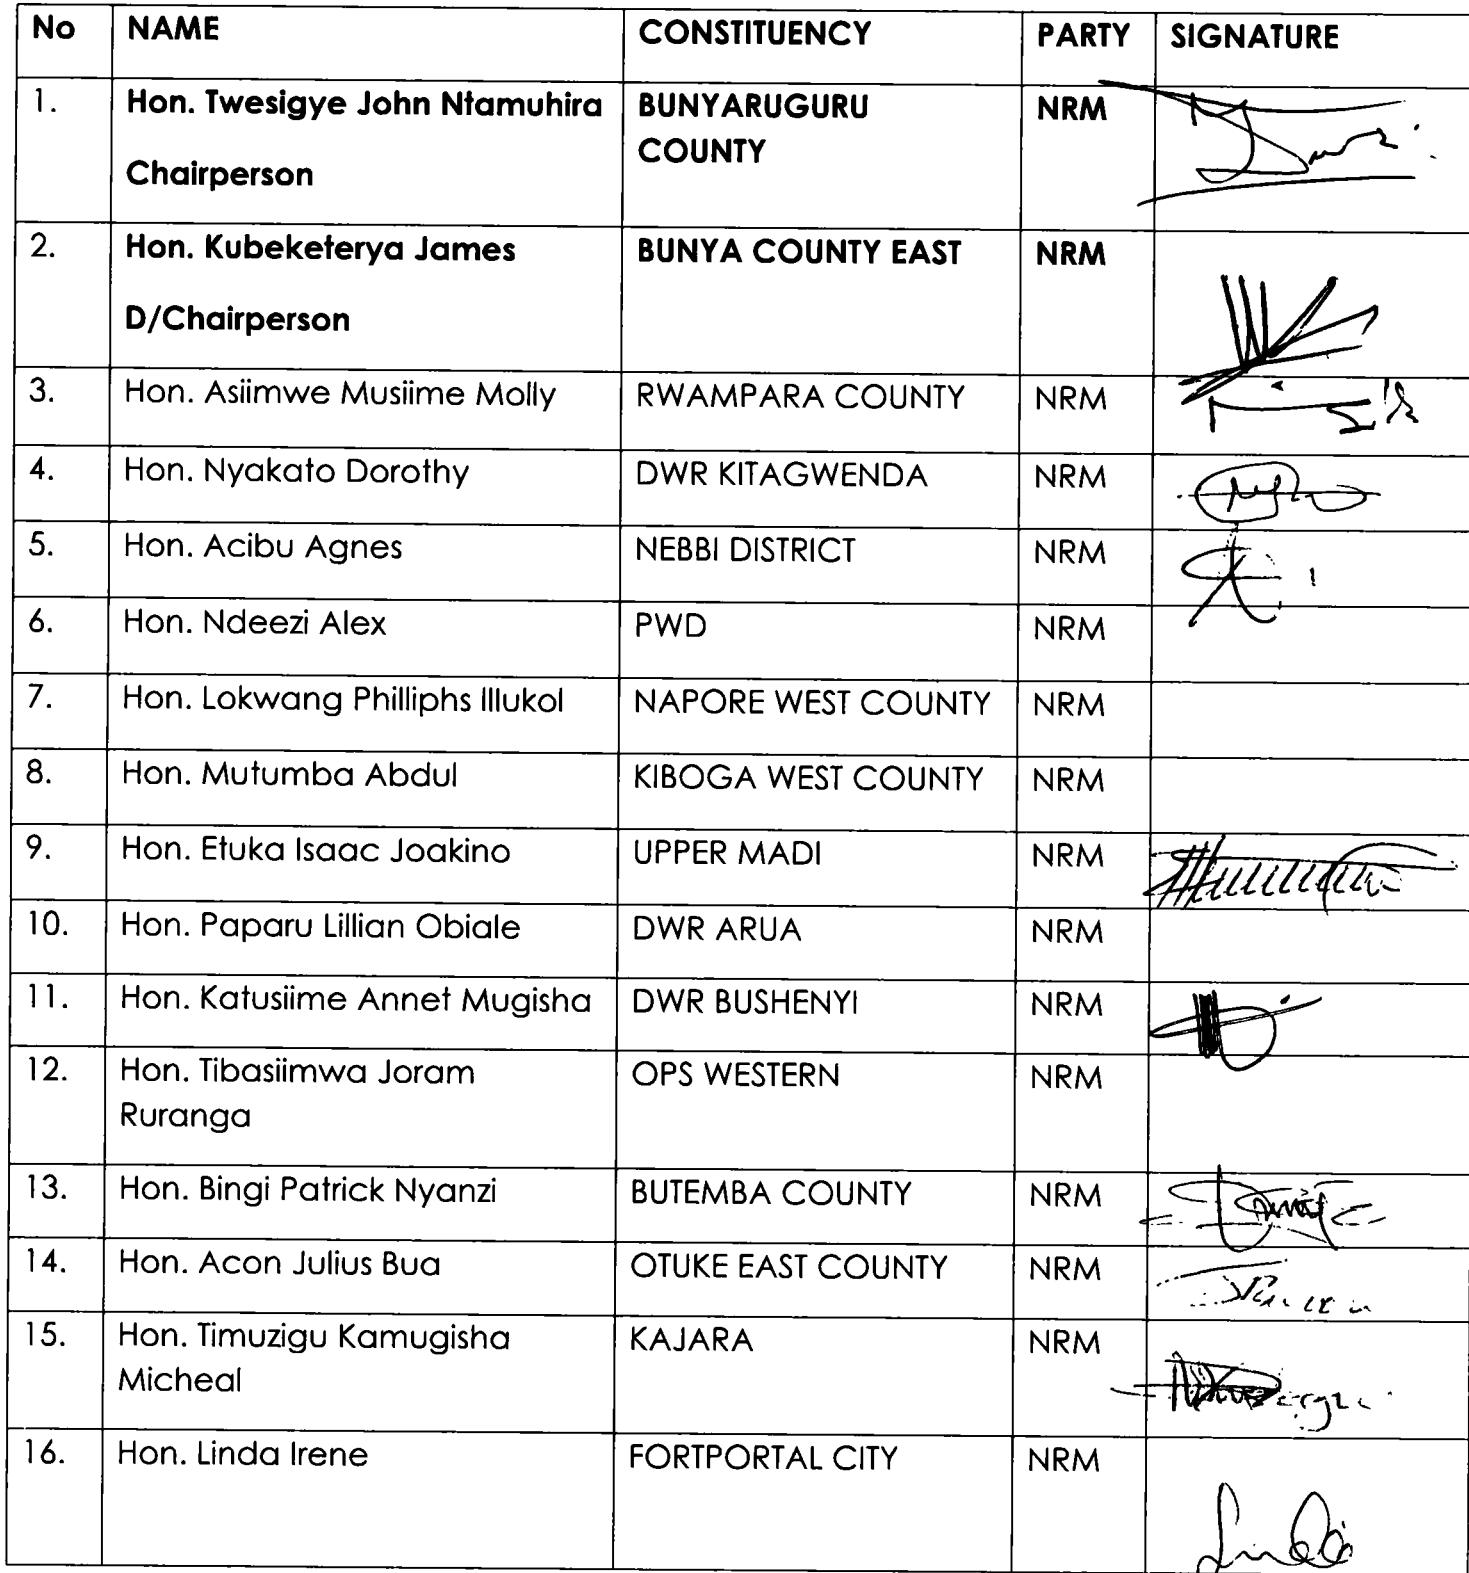 No NAME CONSTITUENCY PARTY SIGNATURE
1. Hon. Twesigye John Ntamuhira BUNYARUGURU NRM
COUNTY
Chairperson
2. Hon. Kubeketerya James BUNYA COUNTY EAST NRM
D/Chairperson
3. Hon. Asiimwe Musiime Molly RWAMPARA COUNTY NRM
4. Hon. Nyakato Dorothy DWR KITAGWENDA NRM
5. Hon. Acibu Agnes NEBBI DISTRICT NRM
6. Hon. Ndeezi Alex PWD NRM
7. Hon. Lokwang Philliphs Illukol NAPORE WEST COUNTY NRM
8. Hon. Mutumba Abdul KIBOGA WEST COUNTY NRM
9. Hon. Etuka Isaac Joakino UPPER MADI NRM
10. Hon. Paparu Lillian Obiale DWR ARUA NRM
11. Hon. Katusiime Annet Mugisha DWR BUSHENYI NRM
12. Hon. Tibasiimwa Joram OPS WESTERN NRM
Ruranga
13. Hon. Bingi Patrick Nyanzi BUTEMBA COUNTY NRM
14. Hon. Acon Julius Bua OTUKE EAST COUNTY NRM
15. Hon. Timuzigu Kamugisha KAJARA NRM
Micheal
16. Hon. Linda Irene FORTPORTAL CITY NRM